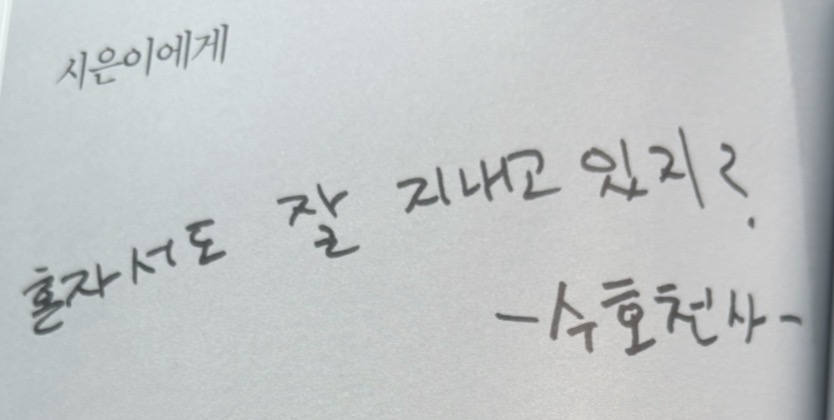 시은이에게
혼자서도 잘 지내고 있지?
-수호천사-